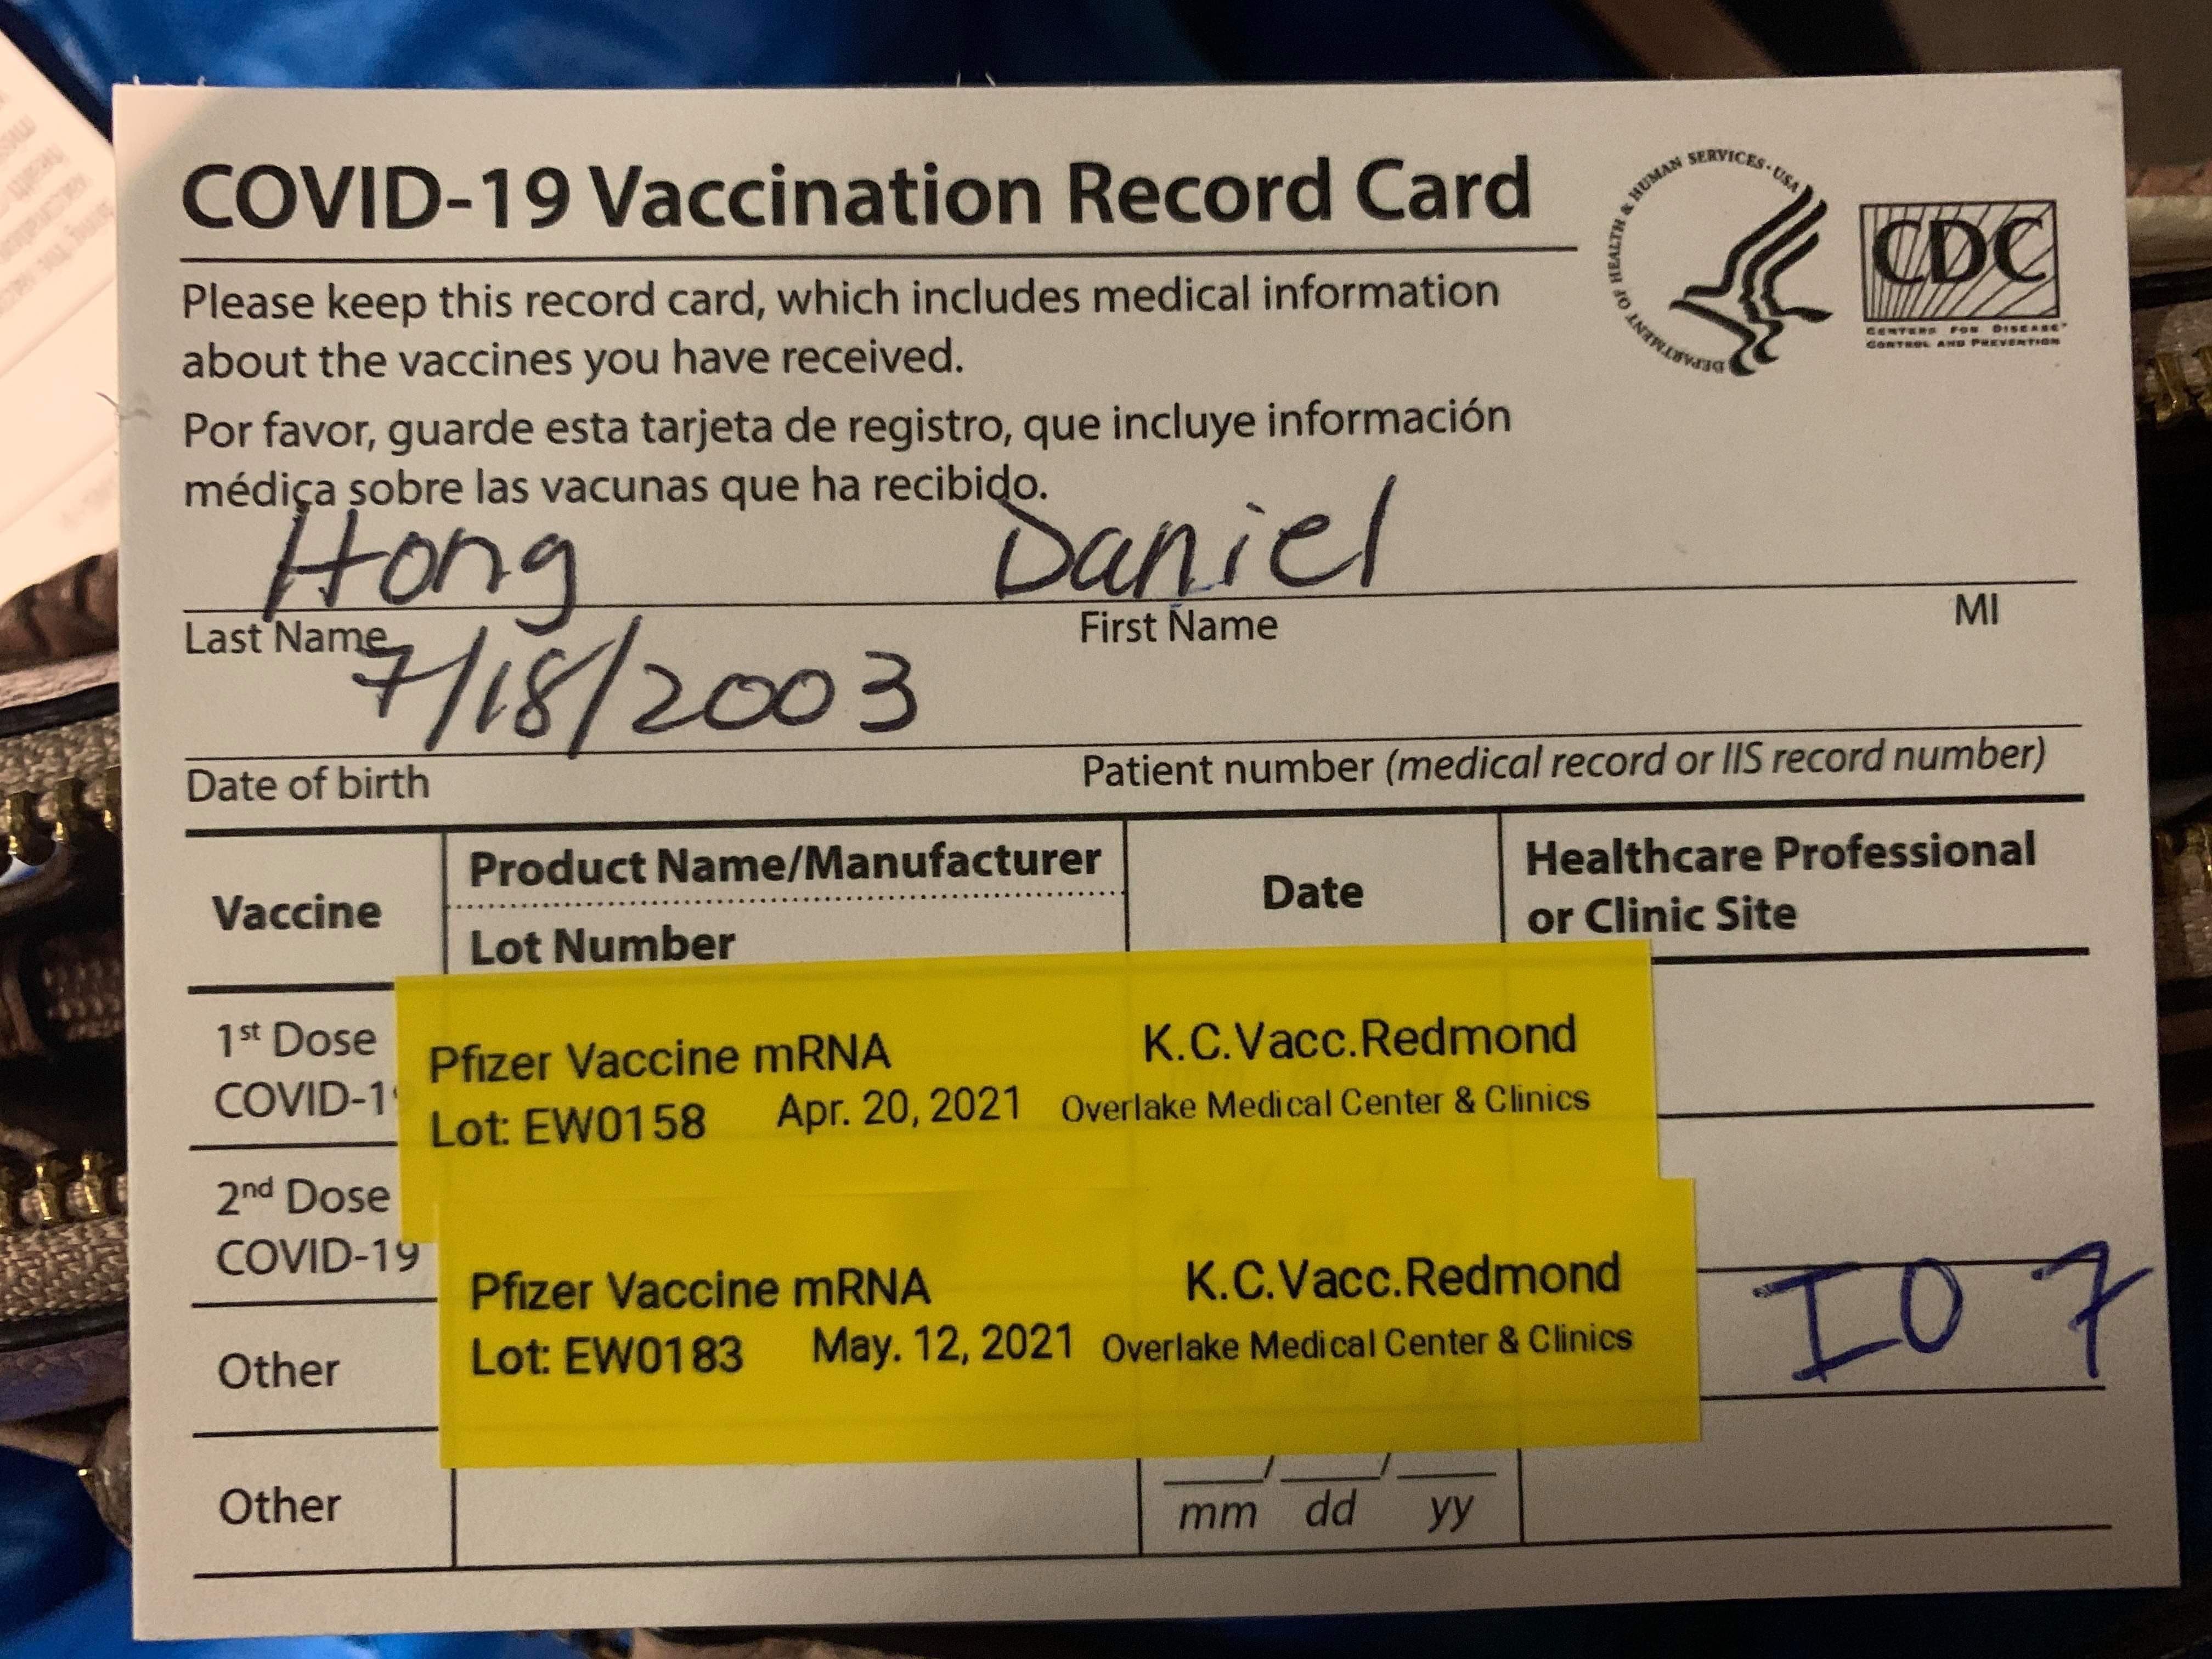 COVID-19 Vaccination Record Card
DEPARTMENT OF HEALTH & HUMAN SERVICES · USA
CDC
CENTERS FOR DISEASE
CONTROL AND PREVENTION
Please keep this record card, which includes medical information
about the vaccines you have received.
Por favor, guarde esta tarjeta de registro, que incluye información
médica sobre las vacunas que ha recibido.
Hong Daniel
Last Name First Name MI
7/18/2003
Date of birth Patient number (medical record or IIS record number)
Vaccine Product Name/Manufacturer Date Healthcare Professional
Lot Number or Clinic Site
1st Dose Pfizer Vaccine mRNA K.C.Vacc.Redmond
COVID-19 Lot: EW0158 Apr. 20, 2021 Overlake Medical Center & Clinics
2nd Dose
COVID-19
Pfizer Vaccine mRNA K.C.Vacc.Redmond
Other Lot: EW0183 May. 12, 2021 Overlake Medical Center & Clinics IO 7
Other
mm / dd / yy